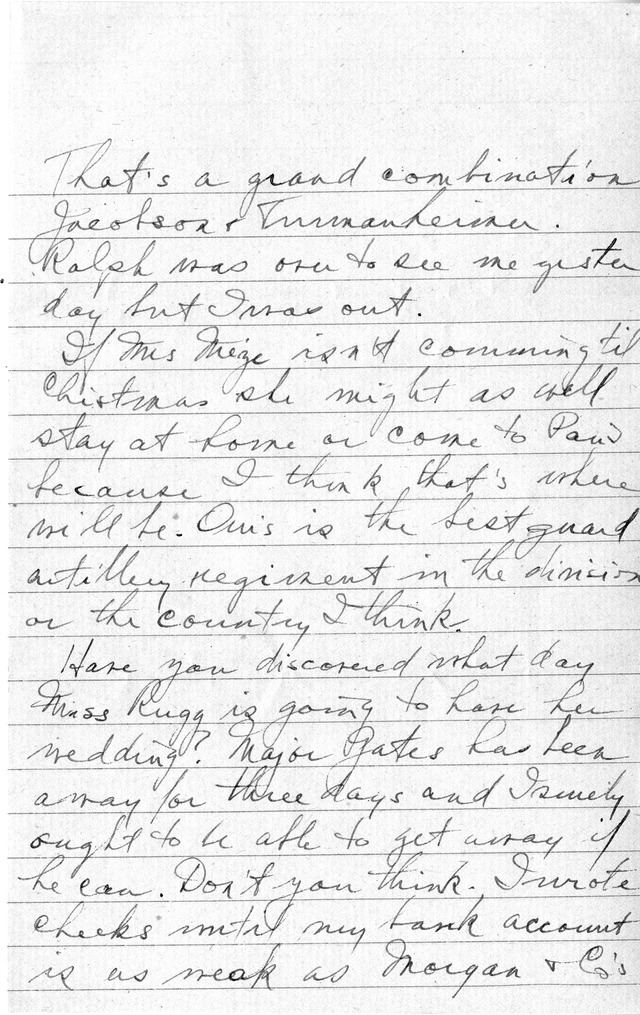 That's a grand combination
Jacobson & Trumanheimer.
Ralph was over to see me yester
day but I was out.
If Mrs Mize isn't comming til
Chistmas she might as well
stay at home or come to Paris
because I think that's where
will be. Ours is the best guard
artillery regiment in the division
or the country I think.
Have you discovered what day
Miss Rugg is going to have her
wedding? Major Gates has been
away for three days and I surely
ought to be able to get away if
he can. Don't you think. I wrote
checks until my bank account
is as weak as Morgan & Co's